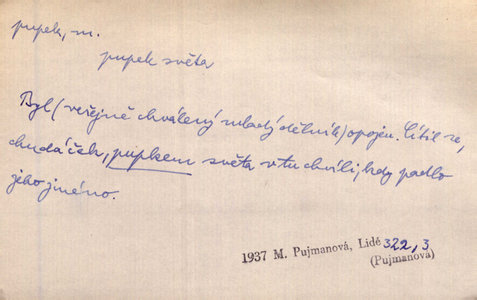 pupek, m.
pupek světa
Byl (veřejně chválený mladý dělník) opojen. Cítil se,
chudáček, pupkem světa v tu chvíli, kdy padlo
jeho jméno.
1937 M. Pujmanová, Lidé 322, 3
(Pujmanová)